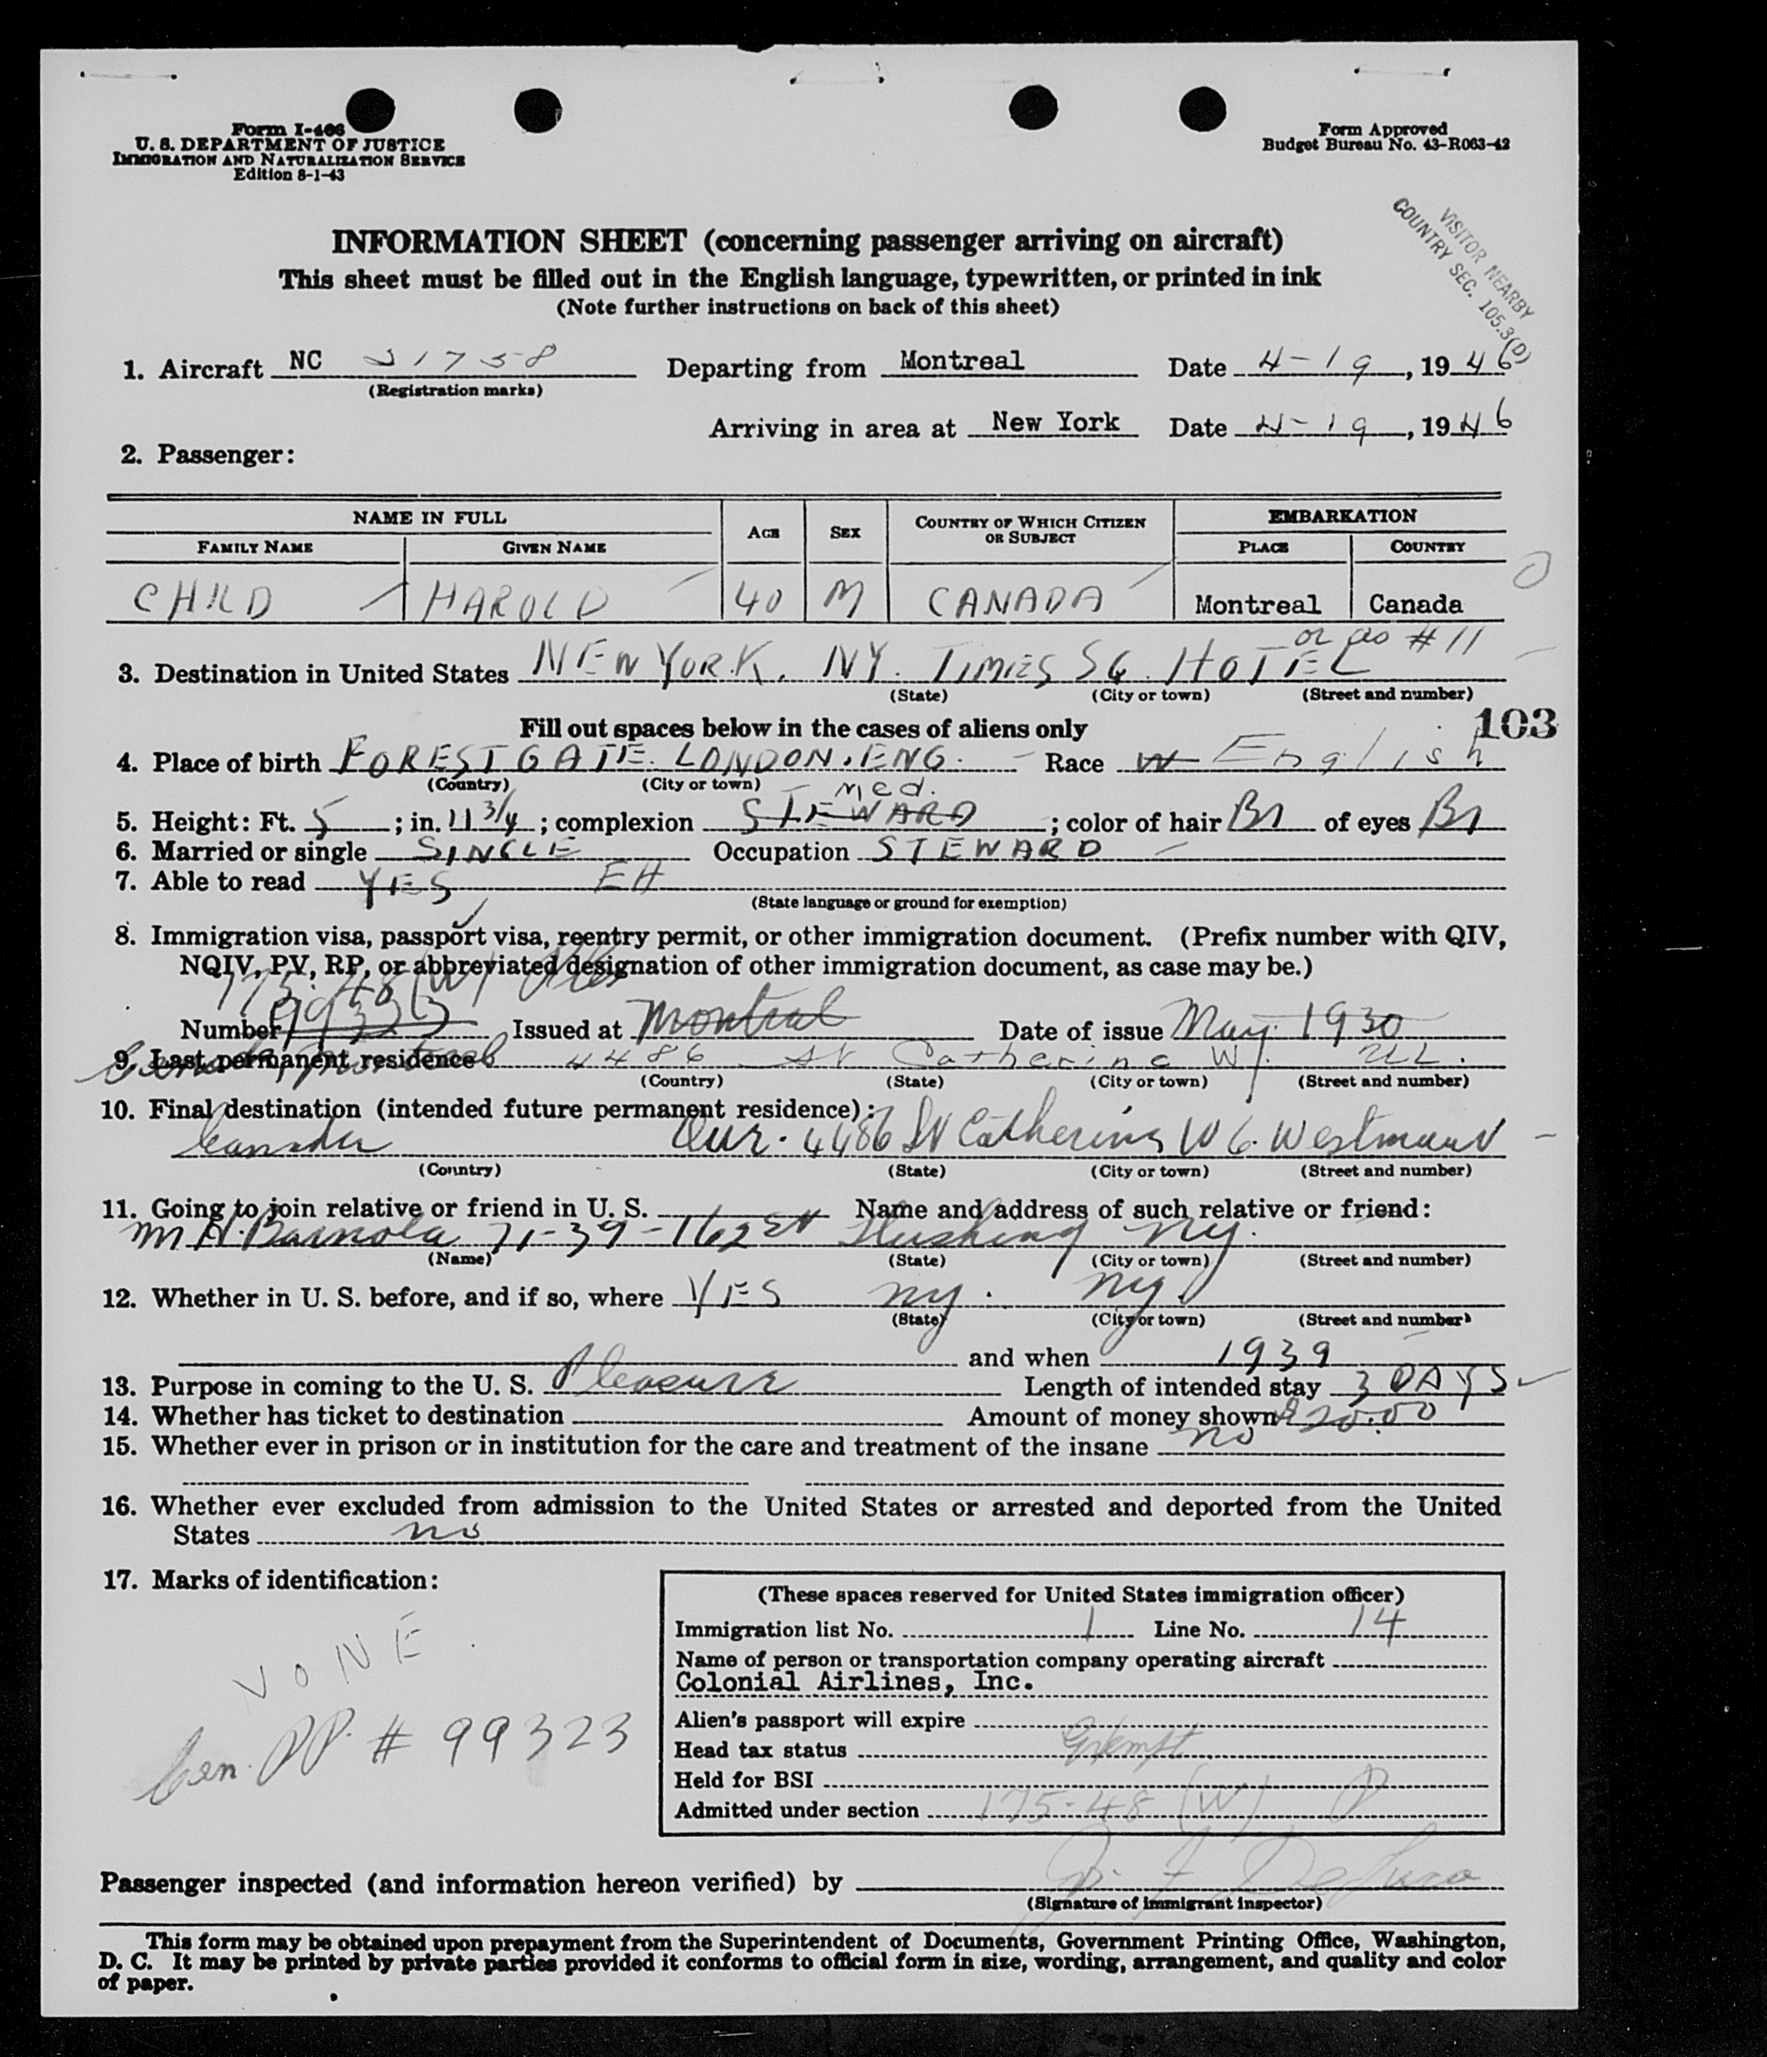 Form I-466
U. S. DEPARTMENT OF JUSTICE
IMMIGRATION AND NATURALIZATION SERVICE
Edition 8-1-43
Form Approved
Budget Bureau No. 43-R063-42
VISITOR NEARBY
COUNTRY SEC. 105.3(D)
INFORMATION SHEET (concerning passenger arriving on aircraft)
This sheet must be filled out in the English language, typewritten, or printed in ink
(Note further instructions on back of this sheet)
1. Aircraft NC 21758 Departing from Montreal Date 4-19, 1946
(Registration marks)
Arriving in area at New York Date 4-19, 1946
2. Passenger:
NAME IN FULL AGE SEX COUNTRY OF WHICH CITIZEN OR SUBJECT EMBARKATION
FAMILY NAME GIVEN NAME PLACE COUNTRY
CHILD HAROLD 40 M CANADA Montreal Canada
or as #11
3. Destination in United States NEW YORK, NY. TIMES SQ. HOTEL
(State) (City or town) (Street and number)
Fill out spaces below in the cases of aliens only
103
4. Place of birth FOREST GATE. LONDON. ENG. Race W English
(Country) (City or town)
Med.
5. Height: Ft. 5; in. 11 3/4; complexion STEWARD; color of hair Br of eyes Br
6. Married or single SINGLE Occupation STEWARD
7. Able to read YES EH
(State language or ground for exemption)
8. Immigration visa, passport visa, reentry permit, or other immigration document. (Prefix number with QIV,
NQIV, PV, RP, or abbreviated designation of other immigration document, as case may be.)
175.48 (W)
Number 99323 Issued at Montreal Date of issue May. 1930
9. Last permanent residence Canada Montreal 4486 St Catherine W.
(Country) (State) (City or town) (Street and number)
10. Final destination (intended future permanent residence):
Canada Que. 4486 St Catherine W. Westmount
(Country) (State) (City or town) (Street and number)
11. Going to join relative or friend in U. S. Name and address of such relative or friend:
71-39-162 St Flushing NY.
(Name) (State) (City or town) (Street and number)
12. Whether in U. S. before, and if so, where YES NY. NY.
(State) (City or town) (Street and number)
and when 1939
13. Purpose in coming to the U. S. Pleasure Length of intended stay 3 DAYS
14. Whether has ticket to destination Amount of money shown $20.00
15. Whether ever in prison or in institution for the care and treatment of the insane no
16. Whether ever excluded from admission to the United States or arrested and deported from the United
States no
17. Marks of identification:
NONE.
Can. PP. # 99323
(These spaces reserved for United States immigration officer)
Immigration list No. 1 Line No. 14
Name of person or transportation company operating aircraft
Colonial Airlines, Inc.
Alien's passport will expire
Head tax status Exempt
Held for BSI
Admitted under section 175-48 (W)
Passenger inspected (and information hereon verified) by
(Signature of immigrant inspector)
This form may be obtained upon prepayment from the Superintendent of Documents, Government Printing Office, Washington,
D. C. It may be printed by private parties provided it conforms to official form in size, wording, arrangement, and quality and color
of paper.